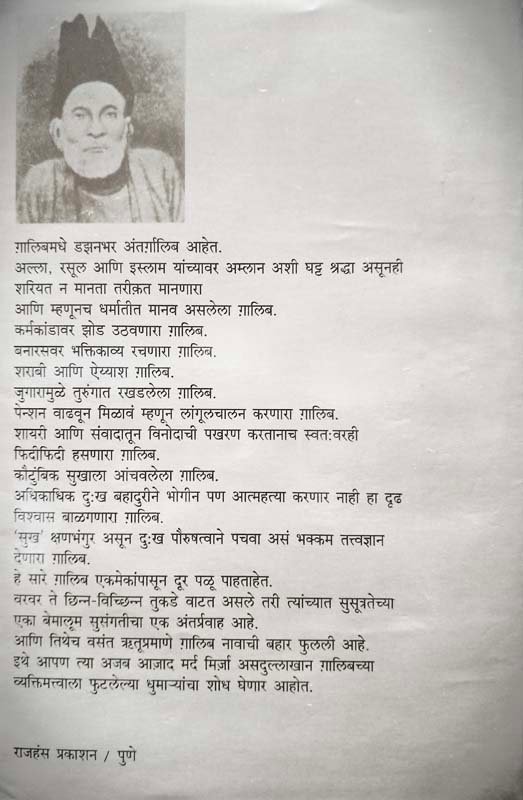 ग़ालिबमधे डझनभर अंतर्ग़ालिब आहेत.
अल्ला, रसूल आणि इस्लाम यांच्यावर अम्लान अशी घट्ट श्रद्धा असूनही
शरियत न मानता तरीक़त मानणारा
आणि म्हणूनच धर्मातीत मानव असलेला ग़ालिब.
कर्मकांडावर झोड उठवणारा ग़ालिब.
बनारसवर भक्तिकाव्य रचणारा ग़ालिब.
शराबी आणि ऐय्याश ग़ालिब.
जुगारामुळे तुरुंगात रखडलेला ग़ालिब.
पेन्शन वाढवून मिळावं म्हणून लांगूलचालन करणारा ग़ालिब.
शायरी आणि संवादातून विनोदाची पखरण करतानाच स्वत:वरही
फिदीफिदी हसणारा ग़ालिब.
कौटुंबिक सुखाला आंचवलेला ग़ालिब.
अधिकाधिक दु:ख बहादुरीने भोगीन पण आत्महत्या करणार नाही हा दृढ
विश्वास बाळगणारा ग़ालिब.
'सुख' क्षणभंगुर असून दु:ख पौरुषत्वाने पचवा असं भक्कम तत्त्वज्ञान
देणारा ग़ालिब.
हे सारे ग़ालिब एकमेकांपासून दूर पळू पाहताहेत.
वरवर ते छिन्न-विच्छिन्न तुकडे वाटत असले तरी त्यांच्यात सुसूत्रतेच्या
एका बेमालूम सुसंगतीचा एक अंतर्प्रवाह आहे.
आणि तिथेच वसंत ऋतूप्रमाणे ग़ालिब नावाची बहार फुलली आहे.
इथे आपण त्या अजब आज़ाद मर्द मिर्ज़ा असदुल्लाखान ग़ालिबच्या
व्यक्तिमत्त्वाला फुटलेल्या धुमाऱ्यांचा शोध घेणार आहोत.
राजहंस प्रकाशन / पुणे